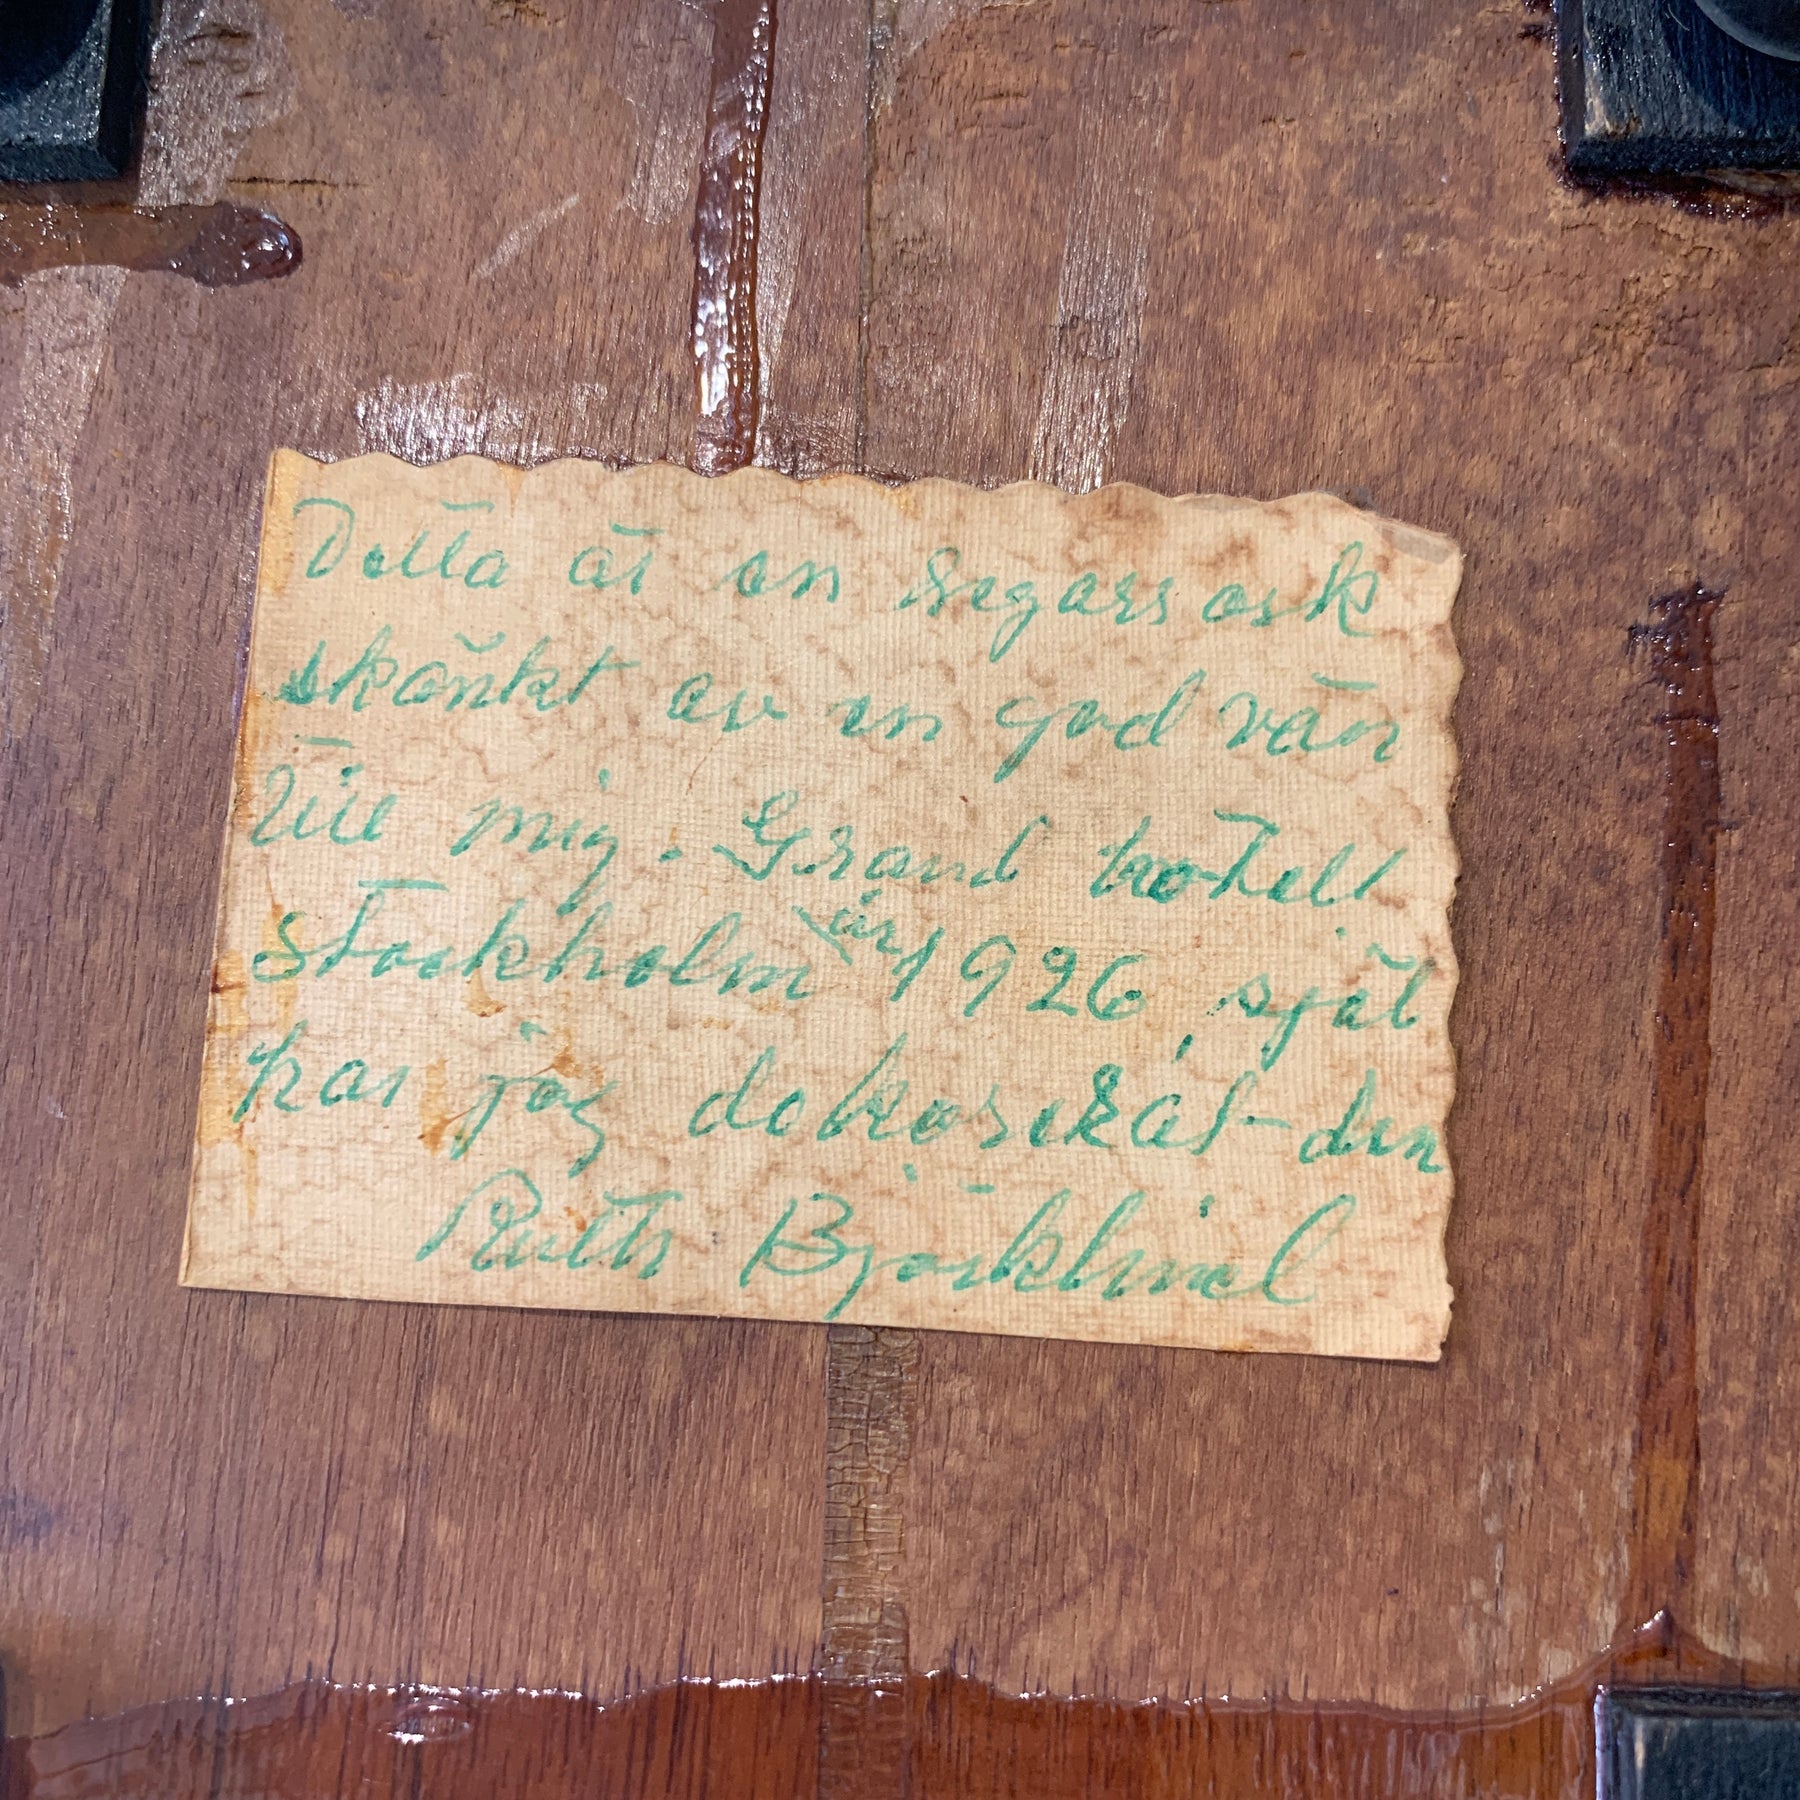 Detta är en segarrask
skänkt av en god vän
till mig. Grand hotell
Stockholm år 1926, själ
har jag dekorerat den
Ruth Björklund